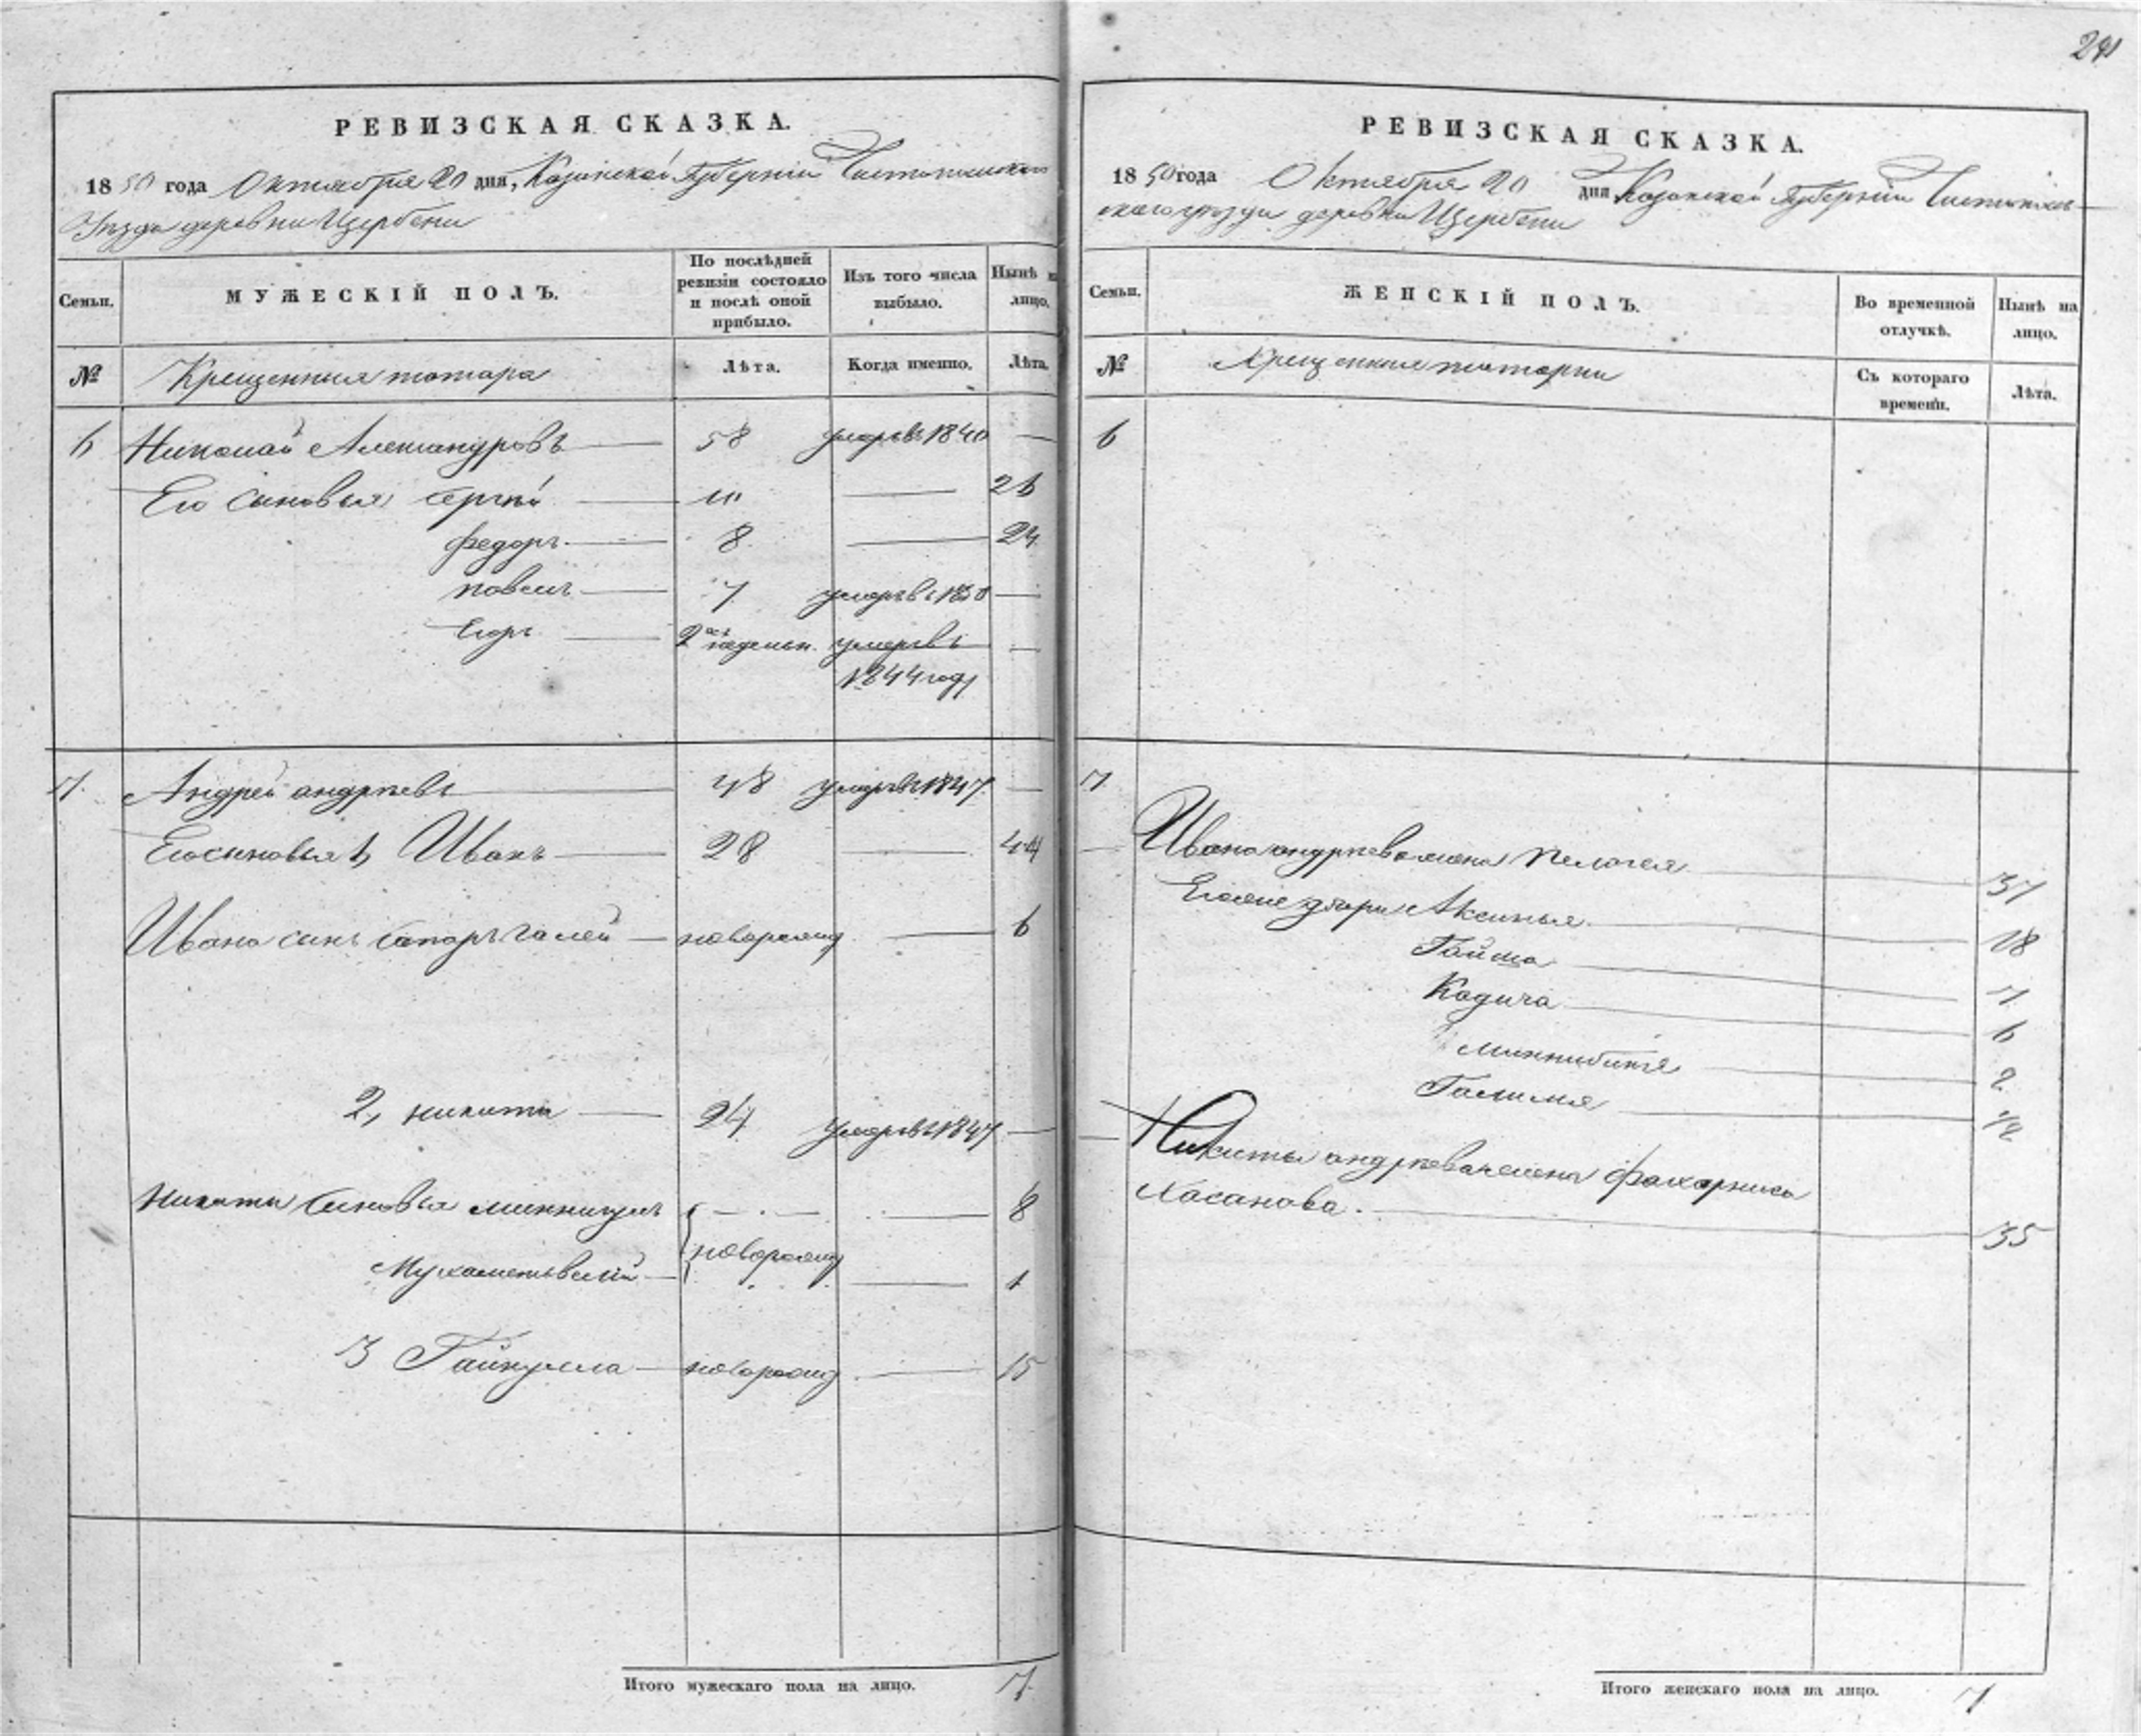 291
РЕВИЗСКАЯ СКАЗКА.
1850 года Октября 20 дня, Казанской Губернии Чистопольскаго
Уезда деревни Щербени
Семьи.
МУЖЕСКІЙ ПОЛЪ.
По послѣдней ревизіи состояло и послѣ оной прибыло.
Изъ того числа выбыло.
Нынѣ на лицо.
№
Крещенныя татара
Лѣта.
Когда именно.
Лѣта.
6 Николай Александровъ 58 умеръ въ 1840 —
Его сыновья Сергѣй 10 — 26
Федоръ 8 — 24
Павелъ 7 умеръ въ 1850 —
Егоръ 2 недельн. умеръ въ —
1844 году
7. Андрей андрѣевъ 48 умеръ въ 1847 —
Его сыновья 1, Иванъ 28 — 44
Ивана сынъ Сапаръгалей новорожд — 6
2, никита 24 умеръ въ 1847 —
Никиты сыновья миннигулъ — 8
новорожд
Мухаметьвалій — 1
3 Гайнулла новорожд — 15
Итого мужескаго пола на лицо. 7.
РЕВИЗСКАЯ СКАЗКА.
1850 года Октября 20 дня Казанской Губернии Чистополь
скаго уезда деревни Щербени
Семьи.
ЖЕНСКІЙ ПОЛЪ.
Во временной отлучкѣ.
Нынѣ на лицо.
№
Крещенныя татарки
Съ котораго времени.
Лѣта.
6
7
Ивана андрѣева жена Пелагея 37
Его дочери Аксинья 18
Гайша 7
Кадича 6
Миннибика 2
Галимя 1/2
Никиты андрѣева жена
Хасанова. 35
Итого женскаго пола на лицо. 7